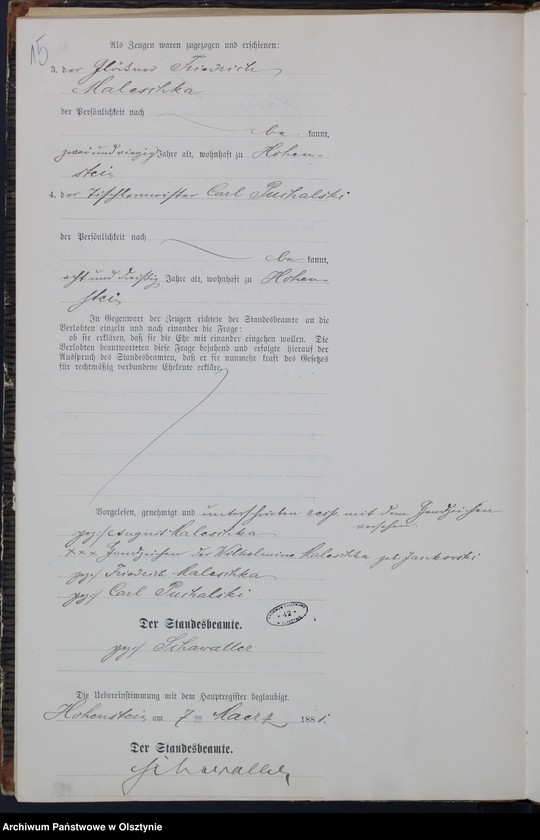 15
Als Zeugen waren zugezogen und erschienen:
3. der Friedrich
Maleschka
der Persönlichkeit nach
be kannt,
zweiundvierzig Jahre alt, wohnhaft zu Hohen-
stein
4. der Tischlermeister Carl Puchalski
der Persönlichkeit nach
be kannt,
acht und dreißig Jahre alt, wohnhaft zu Hohen-
stein
In Gegenwart der Zeugen richtete der Standesbeamte an die
Verlobten einzeln und nach einander die Frage:
ob sie erklären, daß sie die Ehe mit einander eingehen wollen. Die
Verlobten beantworteten diese Frage bejahend und erfolgte hierauf der
Ausspruch des Standesbeamten, daß er sie nunmehr kraft des Gesetzes
für rechtmäßig verbundene Eheleute erkläre.
Vorgelesen, genehmigt und unterschrieben resp. mit dem Handzeichen
versehen.
gez./ August Maleschka
××× Handzeichen der Wilhelmine Maleschka geb. Jankowski
gez./ Friedrich Maleschka
gez./ Carl Puchalski
Der Standesbeamte.
gez./ Schawaller
42
Die Uebereinstimmung mit dem Hauptregister beglaubigt.
Hohenstein am 7 ten Maerz 1881.
Der Standesbeamte.
Schawaller
Archiwum Państwowe w Olsztynie